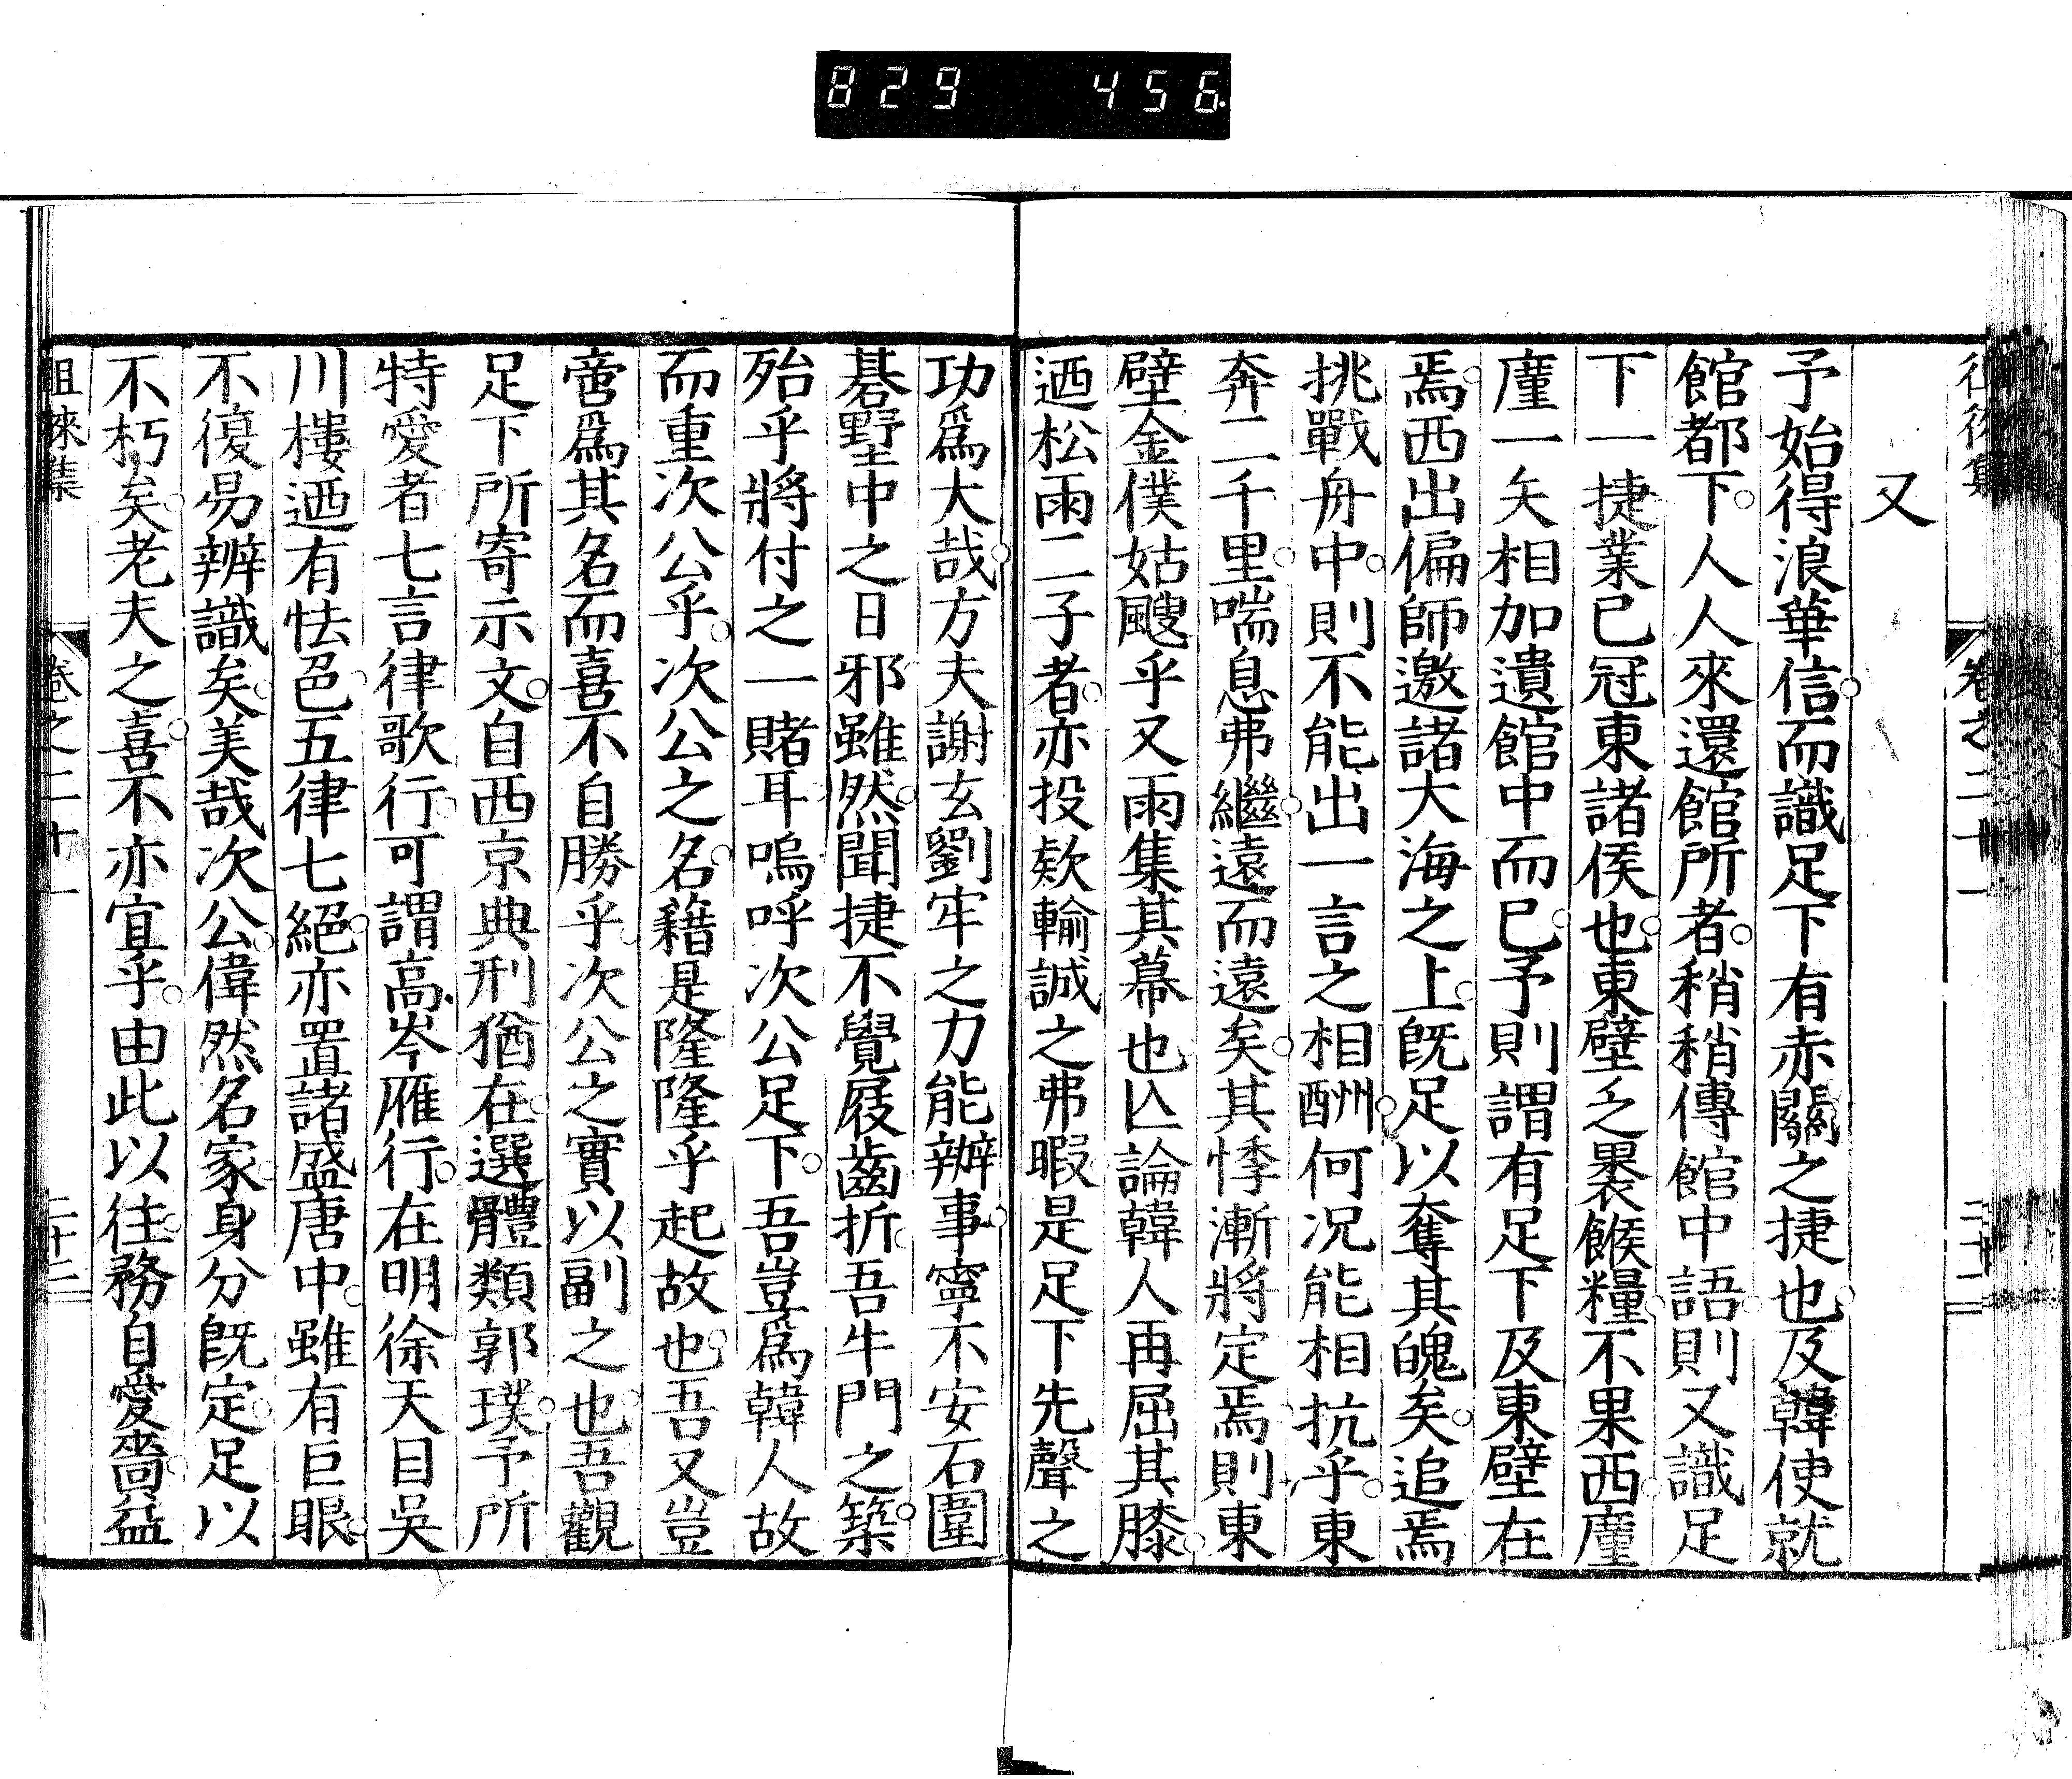 829 456
徂徠集 卷之二十一 二十二
又
予始得浪華信而識足下有赤關之捷也及韓使就
館都下人人來還館所者稍稍傳館中語則又識足
下一捷業已冠東諸侯也東壁乏褁餱糧不果西廑
廑一矢相加遺館中而已予則謂有足下及東壁在
焉西出偏師邀諸大海之上旣足以奪其魄矣追焉
挑戰舟中則不能出一言之相酬何况能相抗乎東
奔二千里喘息弗繼遠而遠矣其悸漸將定焉則東
壁金僕姑颼乎又雨集其幕也亾論韓人再屈其膝
迺松雨二子者亦投欵輸誠之弗暇是足下先聲之
功爲大哉方夫謝玄劉牢之力能辦事寧不安石圍
碁墅中之日邪雖然聞捷不覺屐齒折吾牛門之築
殆乎將付之一賭耳嗚呼次公足下吾豈爲韓人故
而重次公乎次公之名藉是隆隆乎起故也吾又豈
啻爲其名而喜不自勝乎次公之實以副之也吾觀
足下所寄示文自西京典刑猶在選體類郭璞予所
特愛者七言律歌行可謂高岑雁行在明徐天目吳
川樓迺有怯色五律七絕亦置諸盛唐中雖有巨眼
不復易辨識矣美哉次公偉然名家身分旣定足以
不朽矣老夫之喜不亦宜乎由此以往務自愛嗇益
徂徠集 卷之二十一 二十二